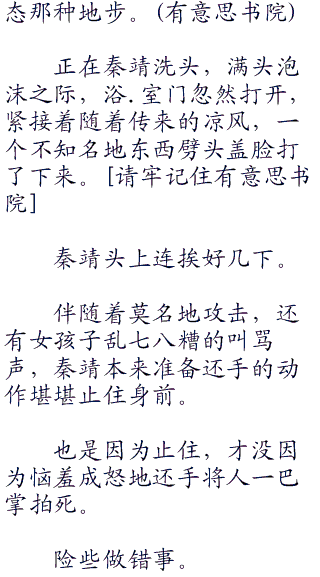 态那种地步。(有意思书院)
正在秦靖洗头，满头泡
沫之际，浴.室门忽然打开，
紧接着随着传来的凉风，一
个不知名地东西劈头盖脸打
了下来。[请牢记住有意思书
院]
秦靖头上连挨好几下。
伴随着莫名地攻击，还
有女孩子乱七八糟的叫骂
声，秦靖本来准备还手的动
作堪堪止住身前。
也是因为止住，才没因
为恼羞成怒地还手将人一巴
掌拍死。
险些做错事。